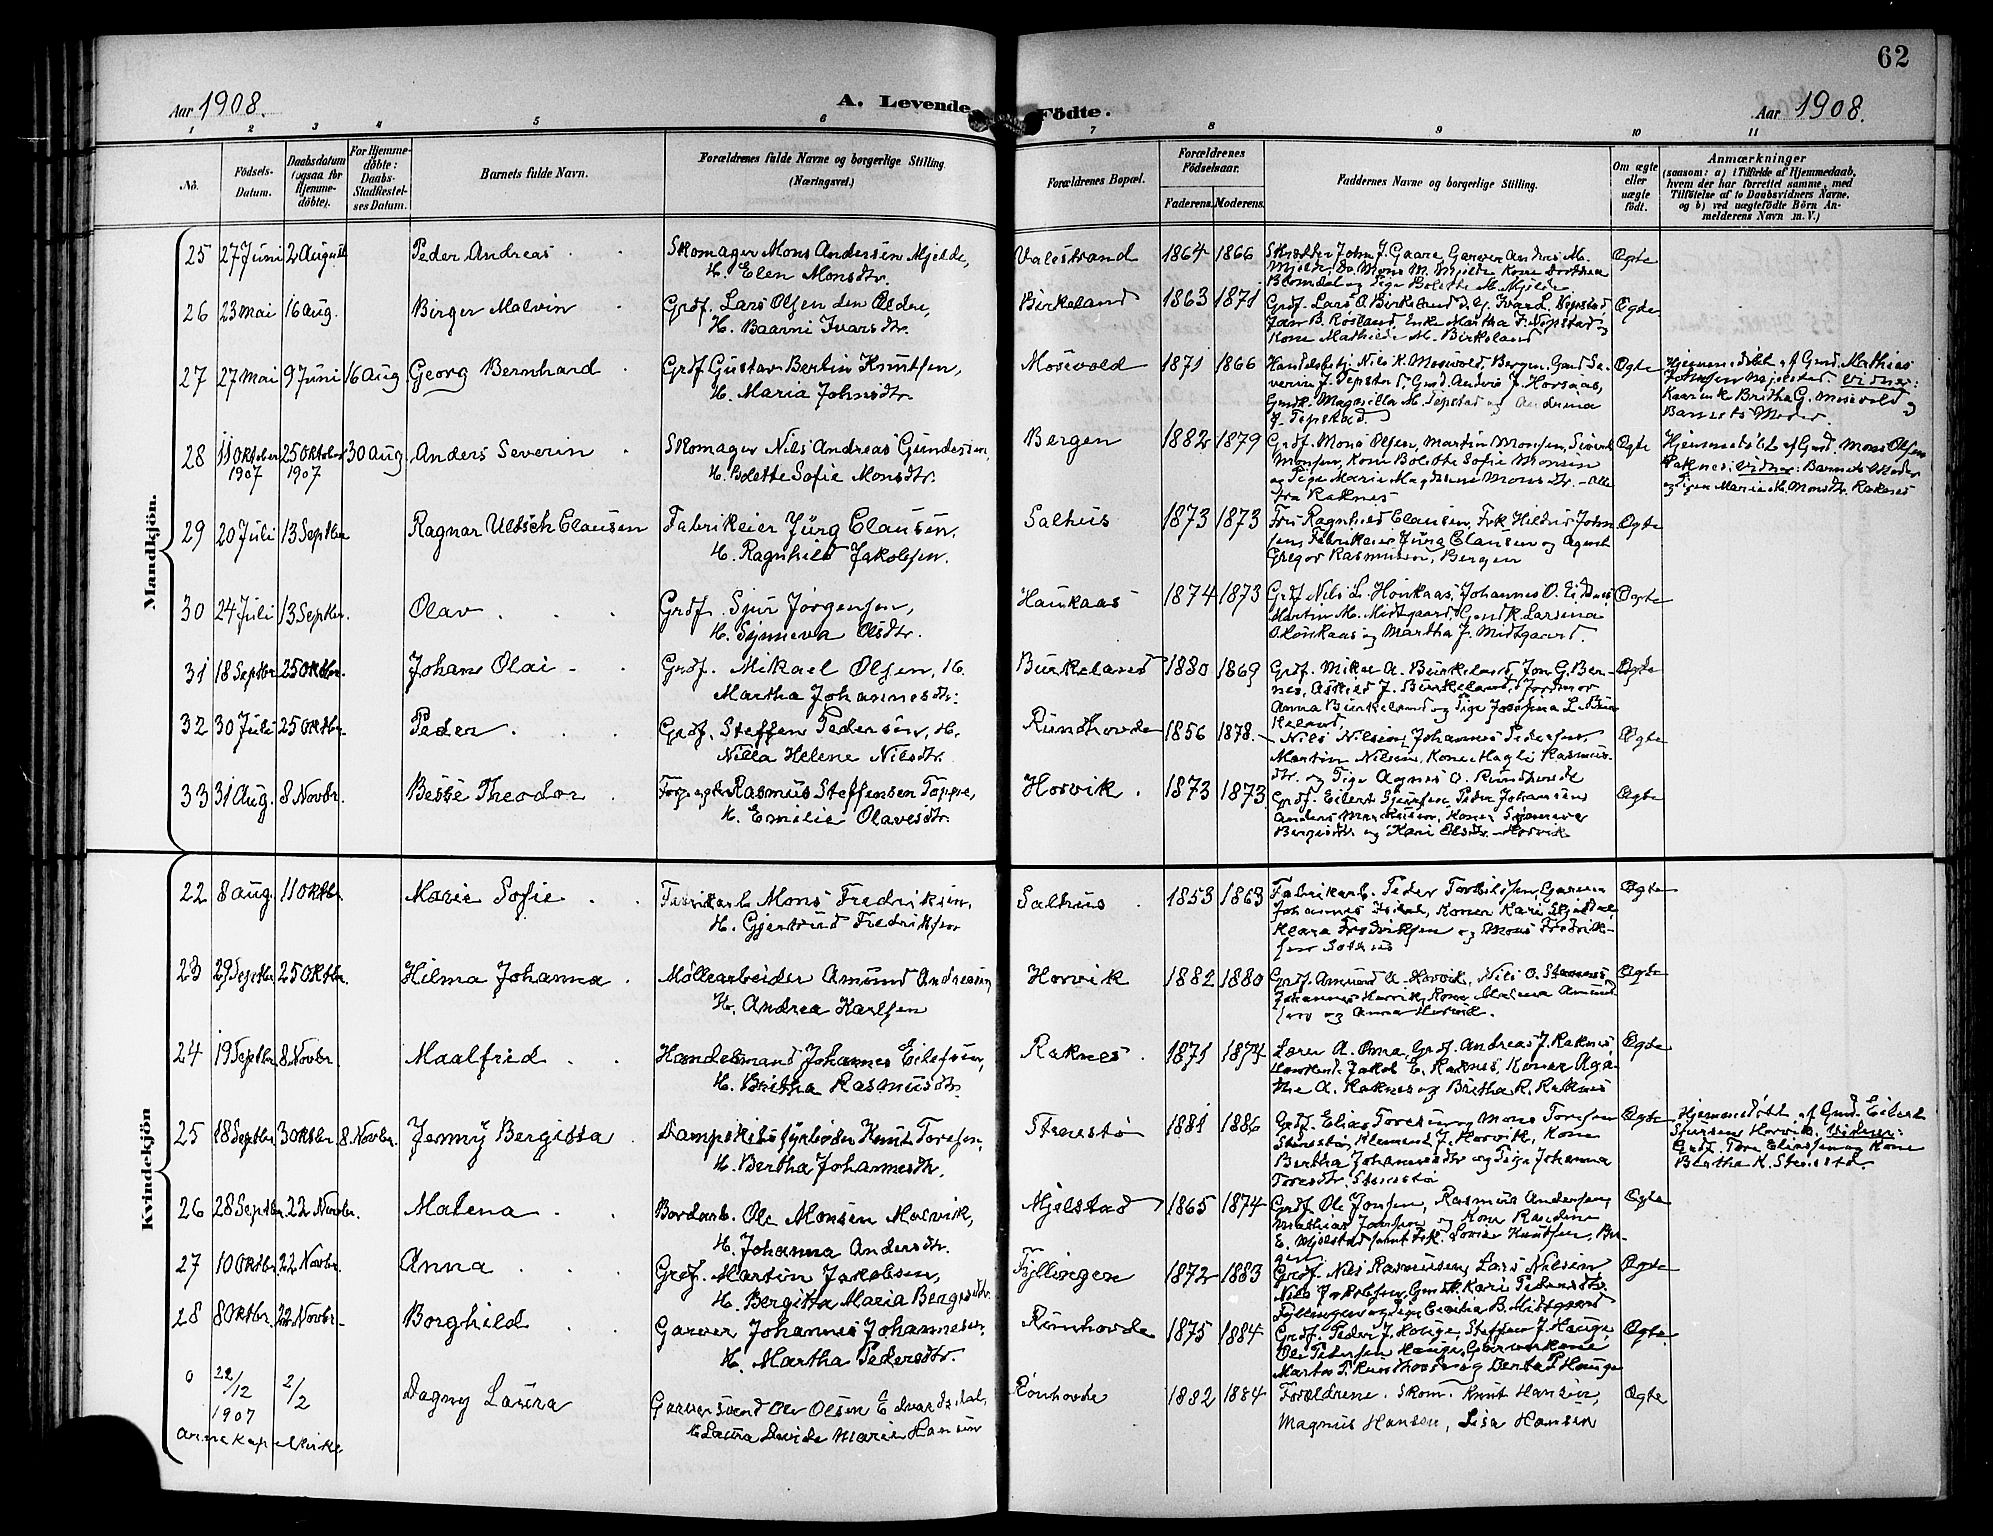 62
Aar 1908.
A. Levende Födte.
Aar 1908.
1 2 3 4 5 6 7 8 9 10 11
No.
Födsels-Datum.
Daabsdatum (ogsaa for Hjemmedöbte).
For Hjemmedöbte: Daabs-Stadfæstelses Datum.
Barnets fulde Navn.
Forældrenes fulde Navne og borgerlige Stilling. (Næringsvei.)
Forældrenes Bopæl.
Forældrenes Födselsaar.
Faderens. Moderens.
Faddernes Navne og borgerlige Stilling.
Om ægte eller uægte födt.
Anmærkninger
(saasom: a) i Tilfælde af Hjemmedaab, hvem der har forrettet samme, med Tilföielse af to Daabsvidners Navne, og b) ved uægtefödte Börn Anmelderens Navn m. V.)
Mandkjön.
25 27 Juni 2 August Peder Andreas Skomager Mons Andersen Mjelde, H. Elen Monsdtr. Valestrand 1864 1866 Skrædder John J. Gaare, Garver Andres M. Mjelde, Do. Mons M. Mjelde Kone Dorthea Blomdal og Pige Bolette M. Mjelde Ægte
26 23 Mai 16 Aug. Birger Malvin Grdf. Lars Olsen den Ældre, H. Baarni Ivarsdtr. Birkeland 1863 1871 Grdf. Lars O. Birkeland, Ivar L. Röpstad, B. Røsland, Enke Martha J. Kone Mathilde M. Birkeland Ægte
27 27 Mai 9 Juni 16 Aug Georg Bernhard Grdf Gustav Berlin Knutsen, H. Maria Johnsdtr. Mosevold 1871 1866 Handelsbetj. Nils K. Mosevold, Bergen, Gmd Severin J. Tepstad Gmd. Anders J. Horsaas, Gmdk. Magnilla M. Tepstad og Andrina J. Tepstad Ægte Hjemmedöbt af Gmd. Mathias Johnsen Mjelstad. Vidner: Kaarene Britha G. Mosevold og Barnets Moder.
28 11 Oktober 1907 25 Oktober 1907 30 Aug. Anders Severin Skomager Nils Andreas Gundersen, H. Bolette Sofie Monsdtr. Bergen 1882 1879 Grdf. Mons Olsen, Martin Monsen, Sivert Monsen, Kone Bolette Sofie Monsen og Pige Marie Magdalene Monsdtr. – alle fra Raknes Ægte Hjemmedöbt af Gmd. Mons Olsen Raknes. Vidner: Barnets Moder og Pigen Marie M. Monsdtr. Raknes
29 20 Juli 13 Septbr Ragnar Ultsch Clausen Fabrikeier Jürg Clausen. H. Ragnhild Jakobsen. Salhus 1873 1873 Fru Ragnhild Clausen, Frk Hildur Johnsen, Fabrikeier Jürg Clausen og Agent Gregor Rasmussen, Bergen Ægte
30 24 Juli 13 Septbr. Olav Grdf. Sjur Jörgensen, H. Synneva Olsdtr. Haukaas 1874 1873 Grdf Nils L. Honkaas, Johannes O. Eidsnes, Martin M. Midtgaard, Gmdk Larsina O. Honkaas og Martha J. Midtgaard. Ægte
31 18 Septbr 25 Oktbr. Johan Olai Grdf. Mikael Olsen, H. Martha Johannesdtr. Burkeland 1880 1869 Grdf. Mikal A. Burkeland, Jon G. Bernes, Askild J. Burkeland, Jordmor Anna Burkeland og Pige Josefina L. Burkeland Ægte
32 30 Juli 25 Oktbr. Peder Grdf. Steffen Pedersen, H. Nilla Helene Nilsdtr. Rundhovde 1856 1878. Nils Nilsen, Johannes Pedersen, Martin Nilsen, Kone Magli Rasmusdtr. og Pige Agnes O. Rundhovde Ægte
33 31 Aug. 8 Novbr. Besse Theodor Rasmus Steffensen Toppe, H. Emilie Olavesdtr. Horvik 1873 1873 Grdf. Eilert Sjursen, Peder Johansen, Anders Markusen, Koner Synneva Bergesdtr. og Kari Olsdtr. Horvik Ægte
Kvindekjön
22 8 Aug. 11 Oktbr. Marie Sofie Fabrikarb. Mons Fredriksen, H. Gjertrud Fredriksen Salhus 1853 1863 Fabrikarb. Peder Torkilsen, Garver Johannes Koner Kari Klara Fredriksen og Mons Fredriksen Salhus Ægte
23 29 Septbr. 25 Oktbr. Hilma Johanna Möllearbeider Amund Andreasen, H. Andrea Karlsen Horvik 1882 1880 Grdf. Amund A. Horvik, Nils O. Stenes, Johannes Horvik, Kone Malena Amundsen og Anna Horvik. Ægte
24 19 Septbr. 8 Novbr. Maalfrid Handelsmand Johannes Eilefsen, H. Britha Rasmusdtr. Raknes 1871 1874 Lærer A. Oma, Grdf. Andreas J. Raknes, Jakob E. Raknes, Koner Agathe A. Raknes og Britha R. Raknes Ægte
25 18 Septbr 3 Oktbr 8 Novbr. Jenny Bergitta Dampskibsfyrböder Knut Toresen, H. Bertha Johannesdtr. Stenestø 1881 1886 Grdf. Elias Toresen og Mons Toresen Stenestø, Klement J. Horvik, Kone Bertha Johannesdtr og Pige Johanna Toresdtr. Stenestø Ægte Hjemmedöbt af Gmd. Eilert Sjursen Horvik, Vidner: Grdf. Tore Eliassen og Kone Bertha K. Stenestø.
26 28 Septbr. 22 Novbr. Malena Bordarb. Ole Monsen Molvik, H. Johanna Andersdtr. Mjelstad 1865 1874 Grdf Ole Jonsen, Rasmus Andersen, Mathias Jansson og Kone Rasdina E. Mjelstad samt Frk. Lovise Knutsen, Bergen Ægte
27 10 Oktbr. 22 Novbr. Anna Grdf. Martin Jakobsen, H. Bergitta Maria Bergesdtr. Fyllingen 1872 1883 Grdf. Nils Rasmussen, Lars Nilsen Nils Jakobsen, Gmdk Kari Pedersdtr. Fyllingen og Pige Cecilia B. Midtgaard Ægte
28 8 Oktbr. 22 Novbr. Borghild Garver Johannes Johannesen. H. Martha Pedersdtr. Rønhovde 1875 1884 Grdf. Peder J. Hauge, Steffen J. Hauge, Ole Pedersen Hauge, Garverkone Marta P. Rundhovde og Berta P. Hauge Ægte
0 22/12 1907 2/2 Dagny Laura Garversvend Ole Olsen Edvardsdal, H. Laura Davida Marie Hansen Rønhovde 1882 1884 Forældrene. Skom. Knut Hansen, Magnus Hansen, Lisa Hansen Ægte